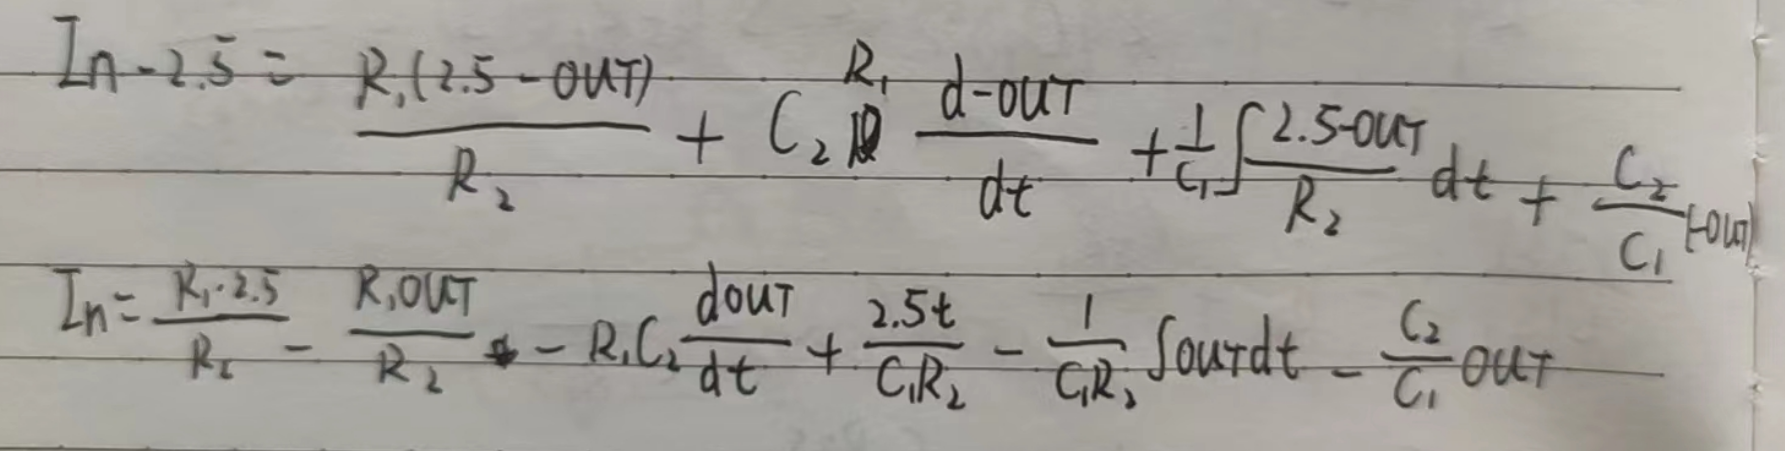 In - 2.5 = R₁(2.5 - OUT)/R₂ + C₂ R₁ d-OUT/dt + 1/C₁ ∫ 2.5-OUT/R₂ dt + C₂/C₁ (-OUT)
In = R₁·2.5/R₂ - R₁OUT/R₂ - R₁C₂ dOUT/dt + 2.5t/C₁R₂ - 1/C₁R₂ ∫OUTdt - C₂/C₁ OUT